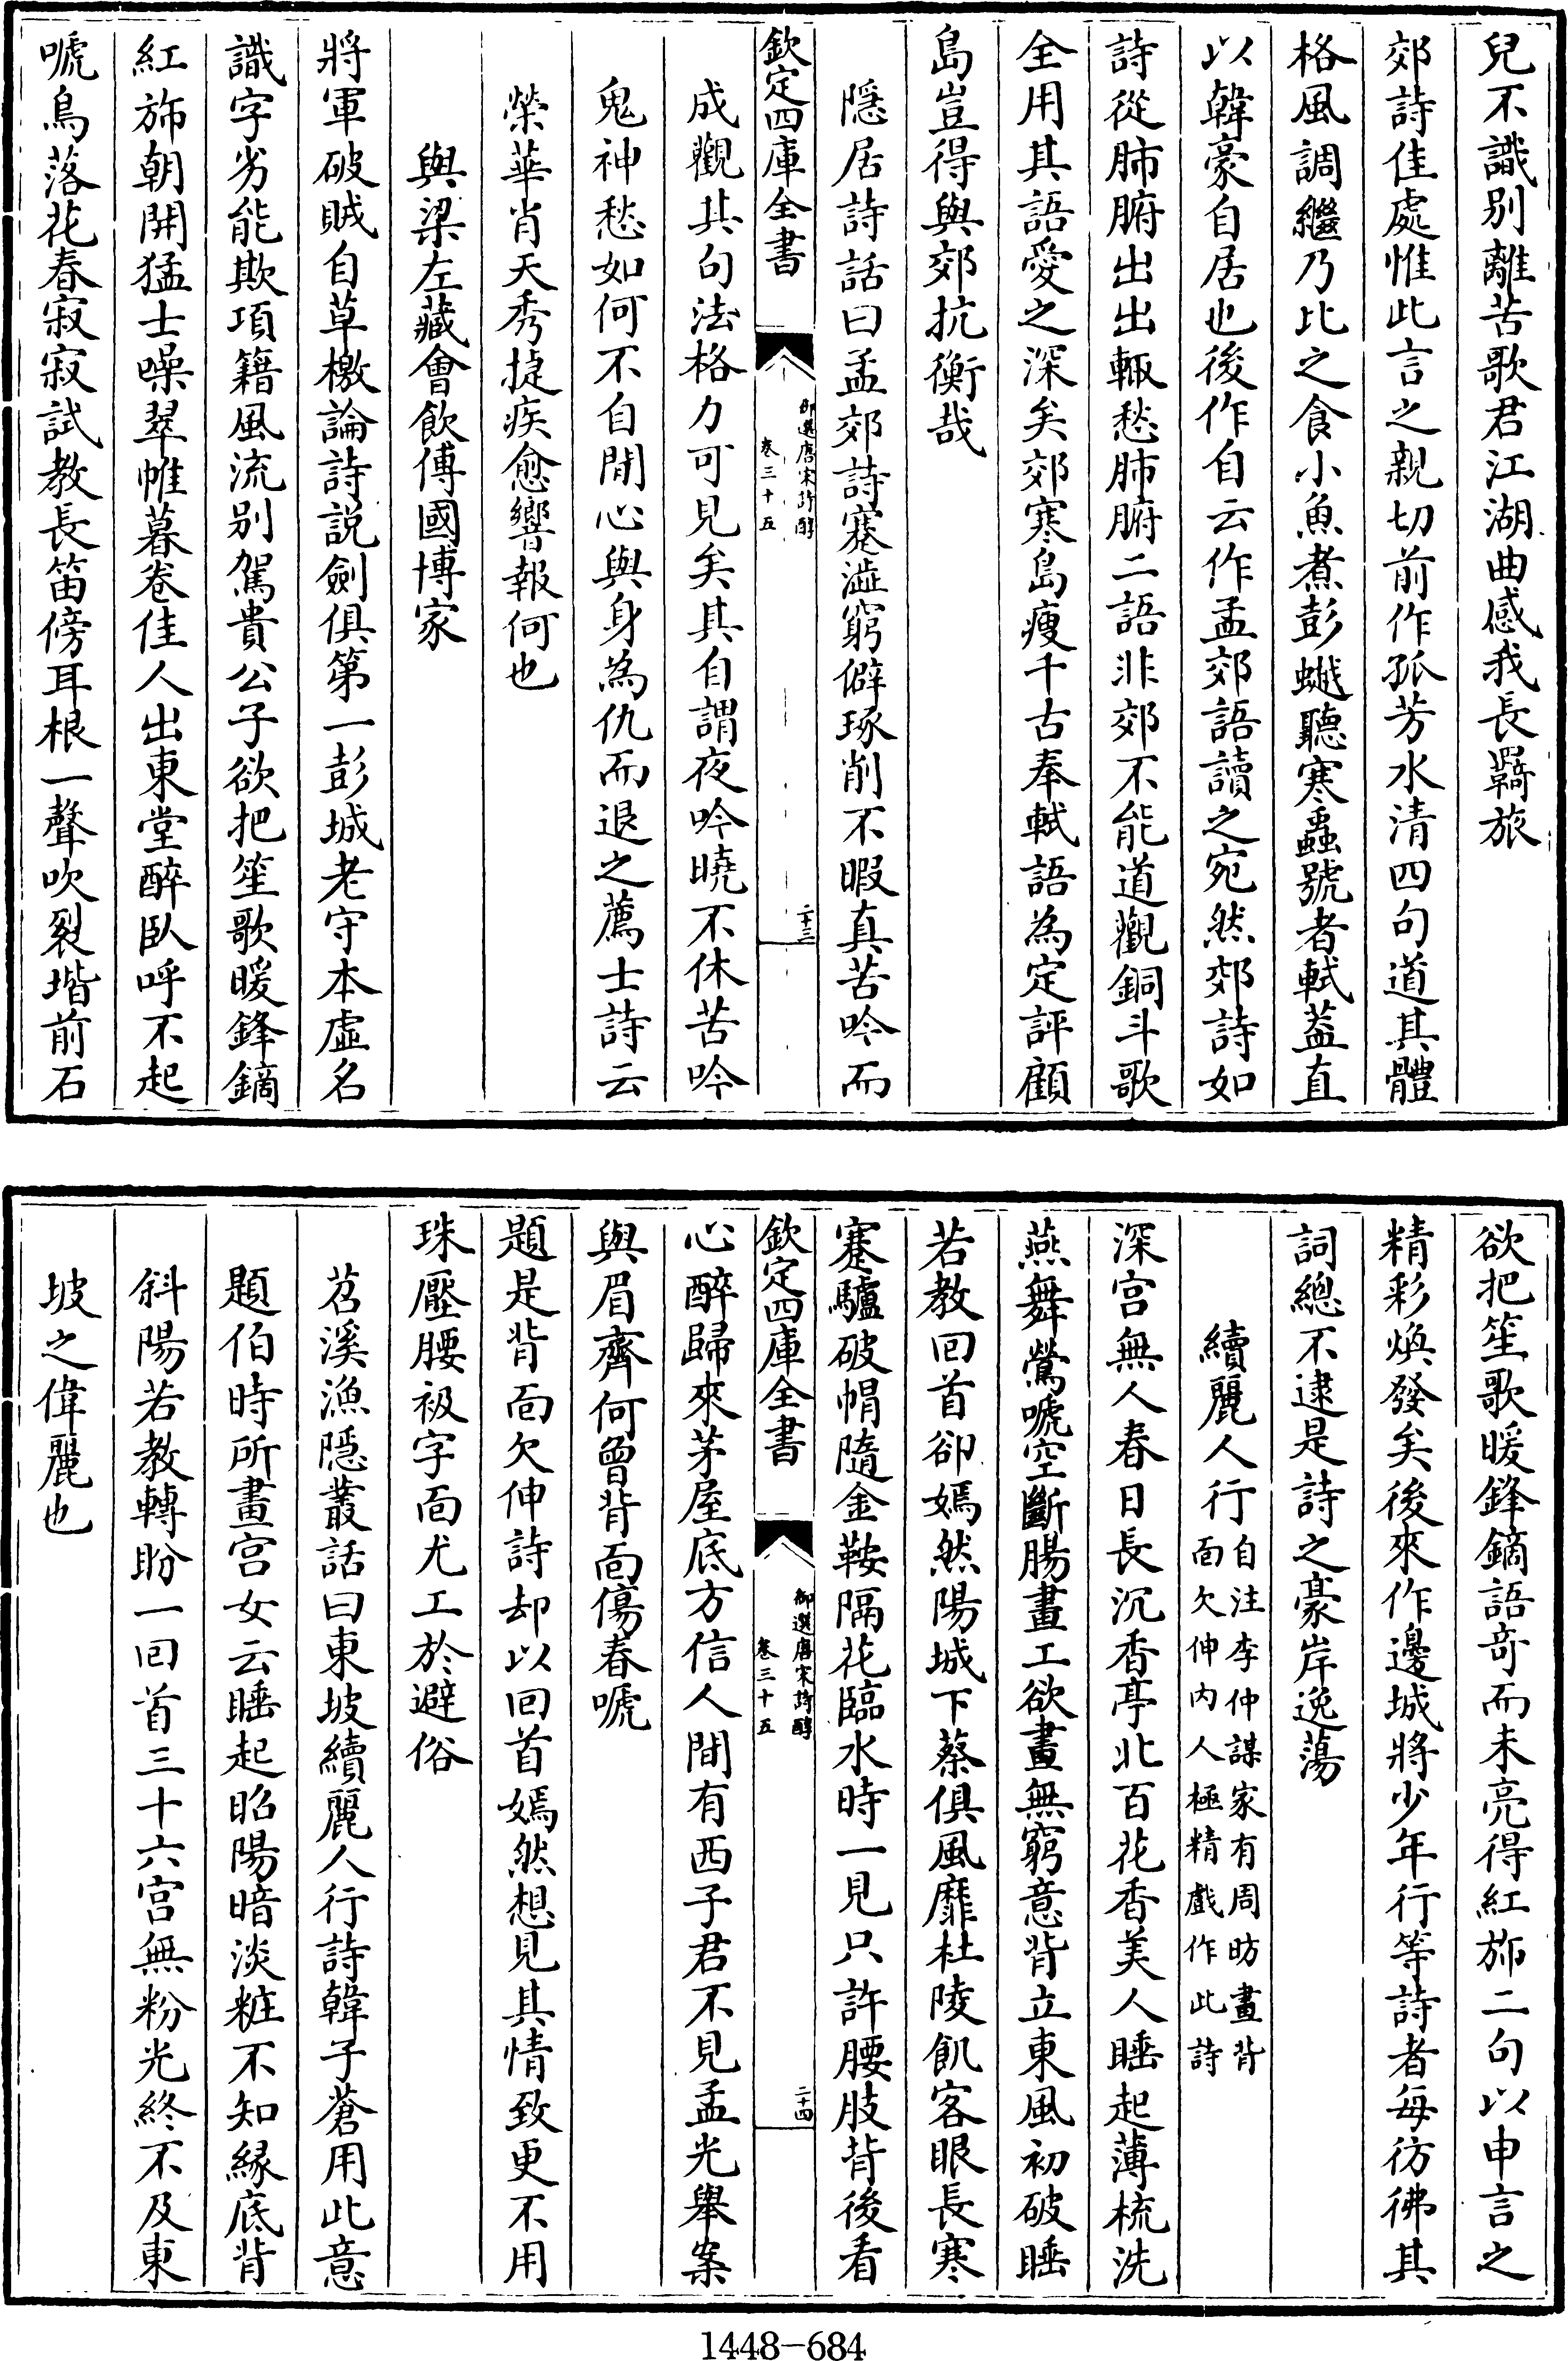 兒不識别離苦歌君江湖曲感我長羇旅
郊詩佳處惟此言之親切前作孤芳水清四句道其體
格風調繼乃比之食小魚煮彭𧑅聽寒蟲號者軾蓋直
以韓豪自居也後作自云作孟郊語讀之宛然郊詩如
詩從肺腑出出輒愁肺腑二語非郊不能道觀銅斗歌
全用其語愛之深矣郊寒島瘦千古奉軾語為定評顧
島豈得與郊抗衡哉
隱居詩話曰孟郊詩蹇澁窮僻琢削不暇真苦吟而
欽定四庫全書
御選唐宋詩醇
卷三十五
二十三
成觀其句法格力可見矣其自謂夜吟曉不休苦吟
鬼神愁如何不自閒心與身為仇而退之薦士詩云
榮華肖天秀捷疾愈響報何也
與梁左藏會飲傅國博家
將軍破賊自草檄論詩説劍俱第一彭城老守本虛名
識字劣能欺項籍風流别駕貴公子欲把笙歌暖鋒鏑
紅斾朝開猛士噪翠帷暮卷佳人出東堂醉臥呼不起
嗁鳥落花春寂寂試教長笛傍耳根一聲吹裂堦前石
欲把笙歌暖鋒鏑語竒而未亮得紅斾二句以申言之
精彩煥發矣後來作邊城將少年行等詩者每彷彿其
詞總不逮是詩之豪岸逸蕩
續麗人行自注李仲謀家有周昉畫背
面欠伸内人極精戲作此詩
深宫無人春日長沉香亭北百花香美人睡起薄梳洗
燕舞鶯嗁空斷腸畫工欲畫無窮意背立東風初破睡
若教回首卻嫣然陽城下蔡俱風靡杜陵飢客眼長寒
蹇驢破帽隨金鞍隔花臨水時一見只許腰肢背後看
欽定四庫全書
御選唐宋詩醇
卷三十五
二十四
心醉歸來茅屋底方信人間有西子君不見孟光舉案
與眉齊何曾背面傷春嗁
題是背面欠伸詩却以回首嫣然想見其情致更不用
珠壓腰衱字面尤工於避俗
苕溪漁隱叢話曰東坡續麗人行詩韓子蒼用此意
題伯時所畫宫女云睡起昭陽暗淡粧不知緣底背
斜陽若教轉盼一回首三十六宫無粉光終不及東
坡之偉麗也
1448-684